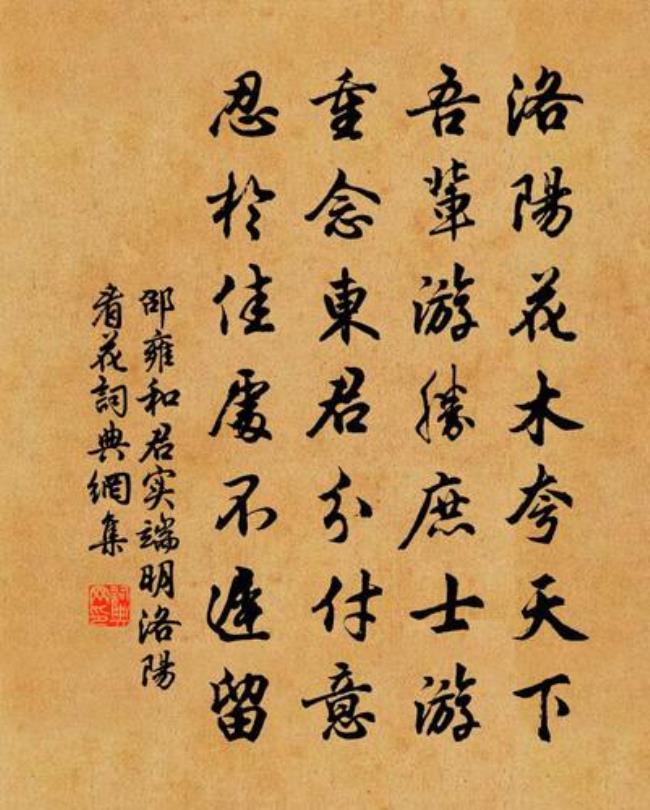 洛陽花木夸天下
吾輩游勝庶士游
重念東君分付意
忍於佳處不遲留
邵雍和君实端明洛陽
看花詞典網集